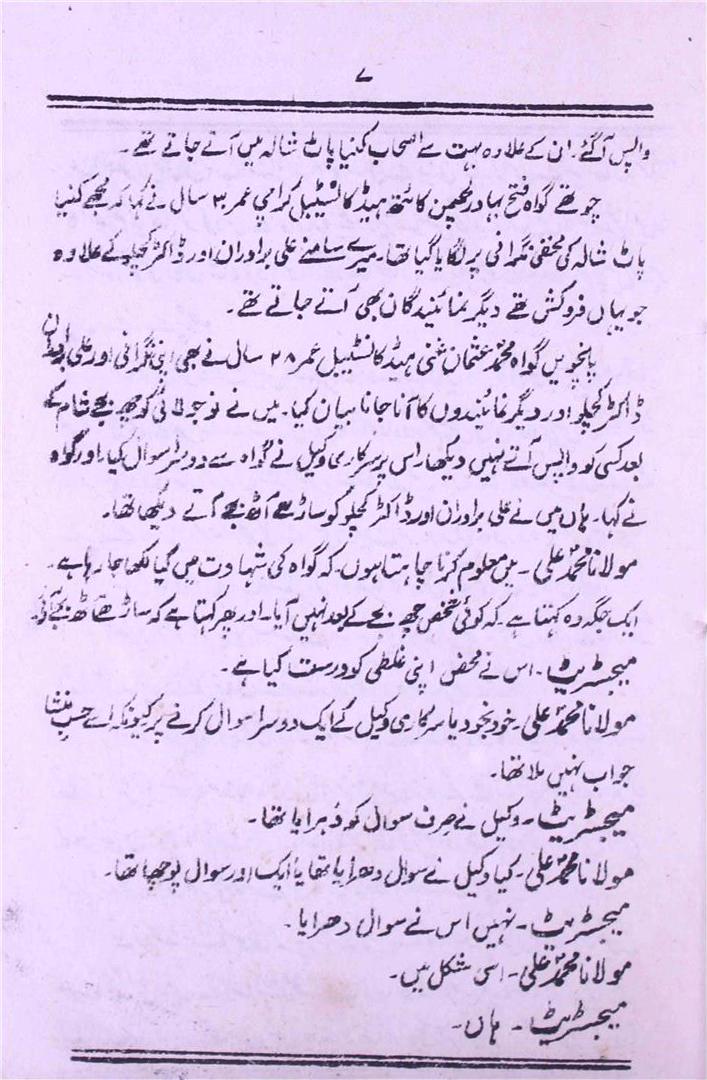 ۷
واپس آگئے۔ ان کے علاوہ بہت سے اصحاب کنیا پاٹ شالہ میں آتے جاتے تھے۔
چوتھے گواہ فتح بہادر لچھمن کائتھ ہیڈ کانسٹیبل کراچی عمر ۳۰ سال نے کہا کہ مجھے کنیا
پاٹ شالہ کی مخفی نگرانی پر لگایا گیا تھا۔ میرے سامنے علی برادران اور ڈاکٹر کچلو کے علاوہ
جو یہاں فروکش تھے دیگر نمائیندگان بھی آتے جاتے تھے۔
پانچویں گواہ محمد عثمان غنی ہیڈ کانسٹیبل عمر ۲۸ سال نے بھی اپنی نگرانی اور علی برادران
ڈاکٹر کچلو اور دیگر نمائیندوں کا آنا جانا بیان کیا۔ میں نے نو جولائی کو چھ بجے شام کے
بعد کسی کو واپس آتے نہیں دیکھا۔ اس پر سرکاری وکیل نے گواہ سے دوسرا سوال کیا۔ اور گواہ
نے کہا۔ ہاں میں نے علی برادران اور ڈاکٹر کچلو کو ساڑھے آٹھ بجے آتے دیکھا تھا۔
مولانا محمد علی۔ میں معلوم کرنا چاہتا ہوں۔ کہ گواہ کی شہادت میں کیا لکھا جا رہا ہے۔
ایک جگہ وہ کہتا ہے۔ کہ کوئی شخص چھ بجے کے بعد نہیں آیا۔ اور پھر کہتا ہے کہ ساڑھے آٹھ بجے آئے۔
میجسٹریٹ۔ اس نے محض اپنی غلطی کو درست کیا ہے۔
مولانا محمد علی۔ خود بخود یا سرکاری وکیل کے ایک دوسرا سوال کرنے پر کیونکہ اسے حسب منشا
جواب نہیں ملا تھا۔
میجسٹریٹ۔ وکیل نے صرف سوال کو دُہرایا تھا۔
مولانا محمد علی۔ کیا وکیل نے سوال دھرایا تھا یا ایک اور سوال پوچھا تھا۔
میجسٹریٹ۔ نہیں اس نے سوال دھرایا۔
مولانا محمد علی۔ اسی شکل میں۔
میجسٹریٹ۔ ہاں۔